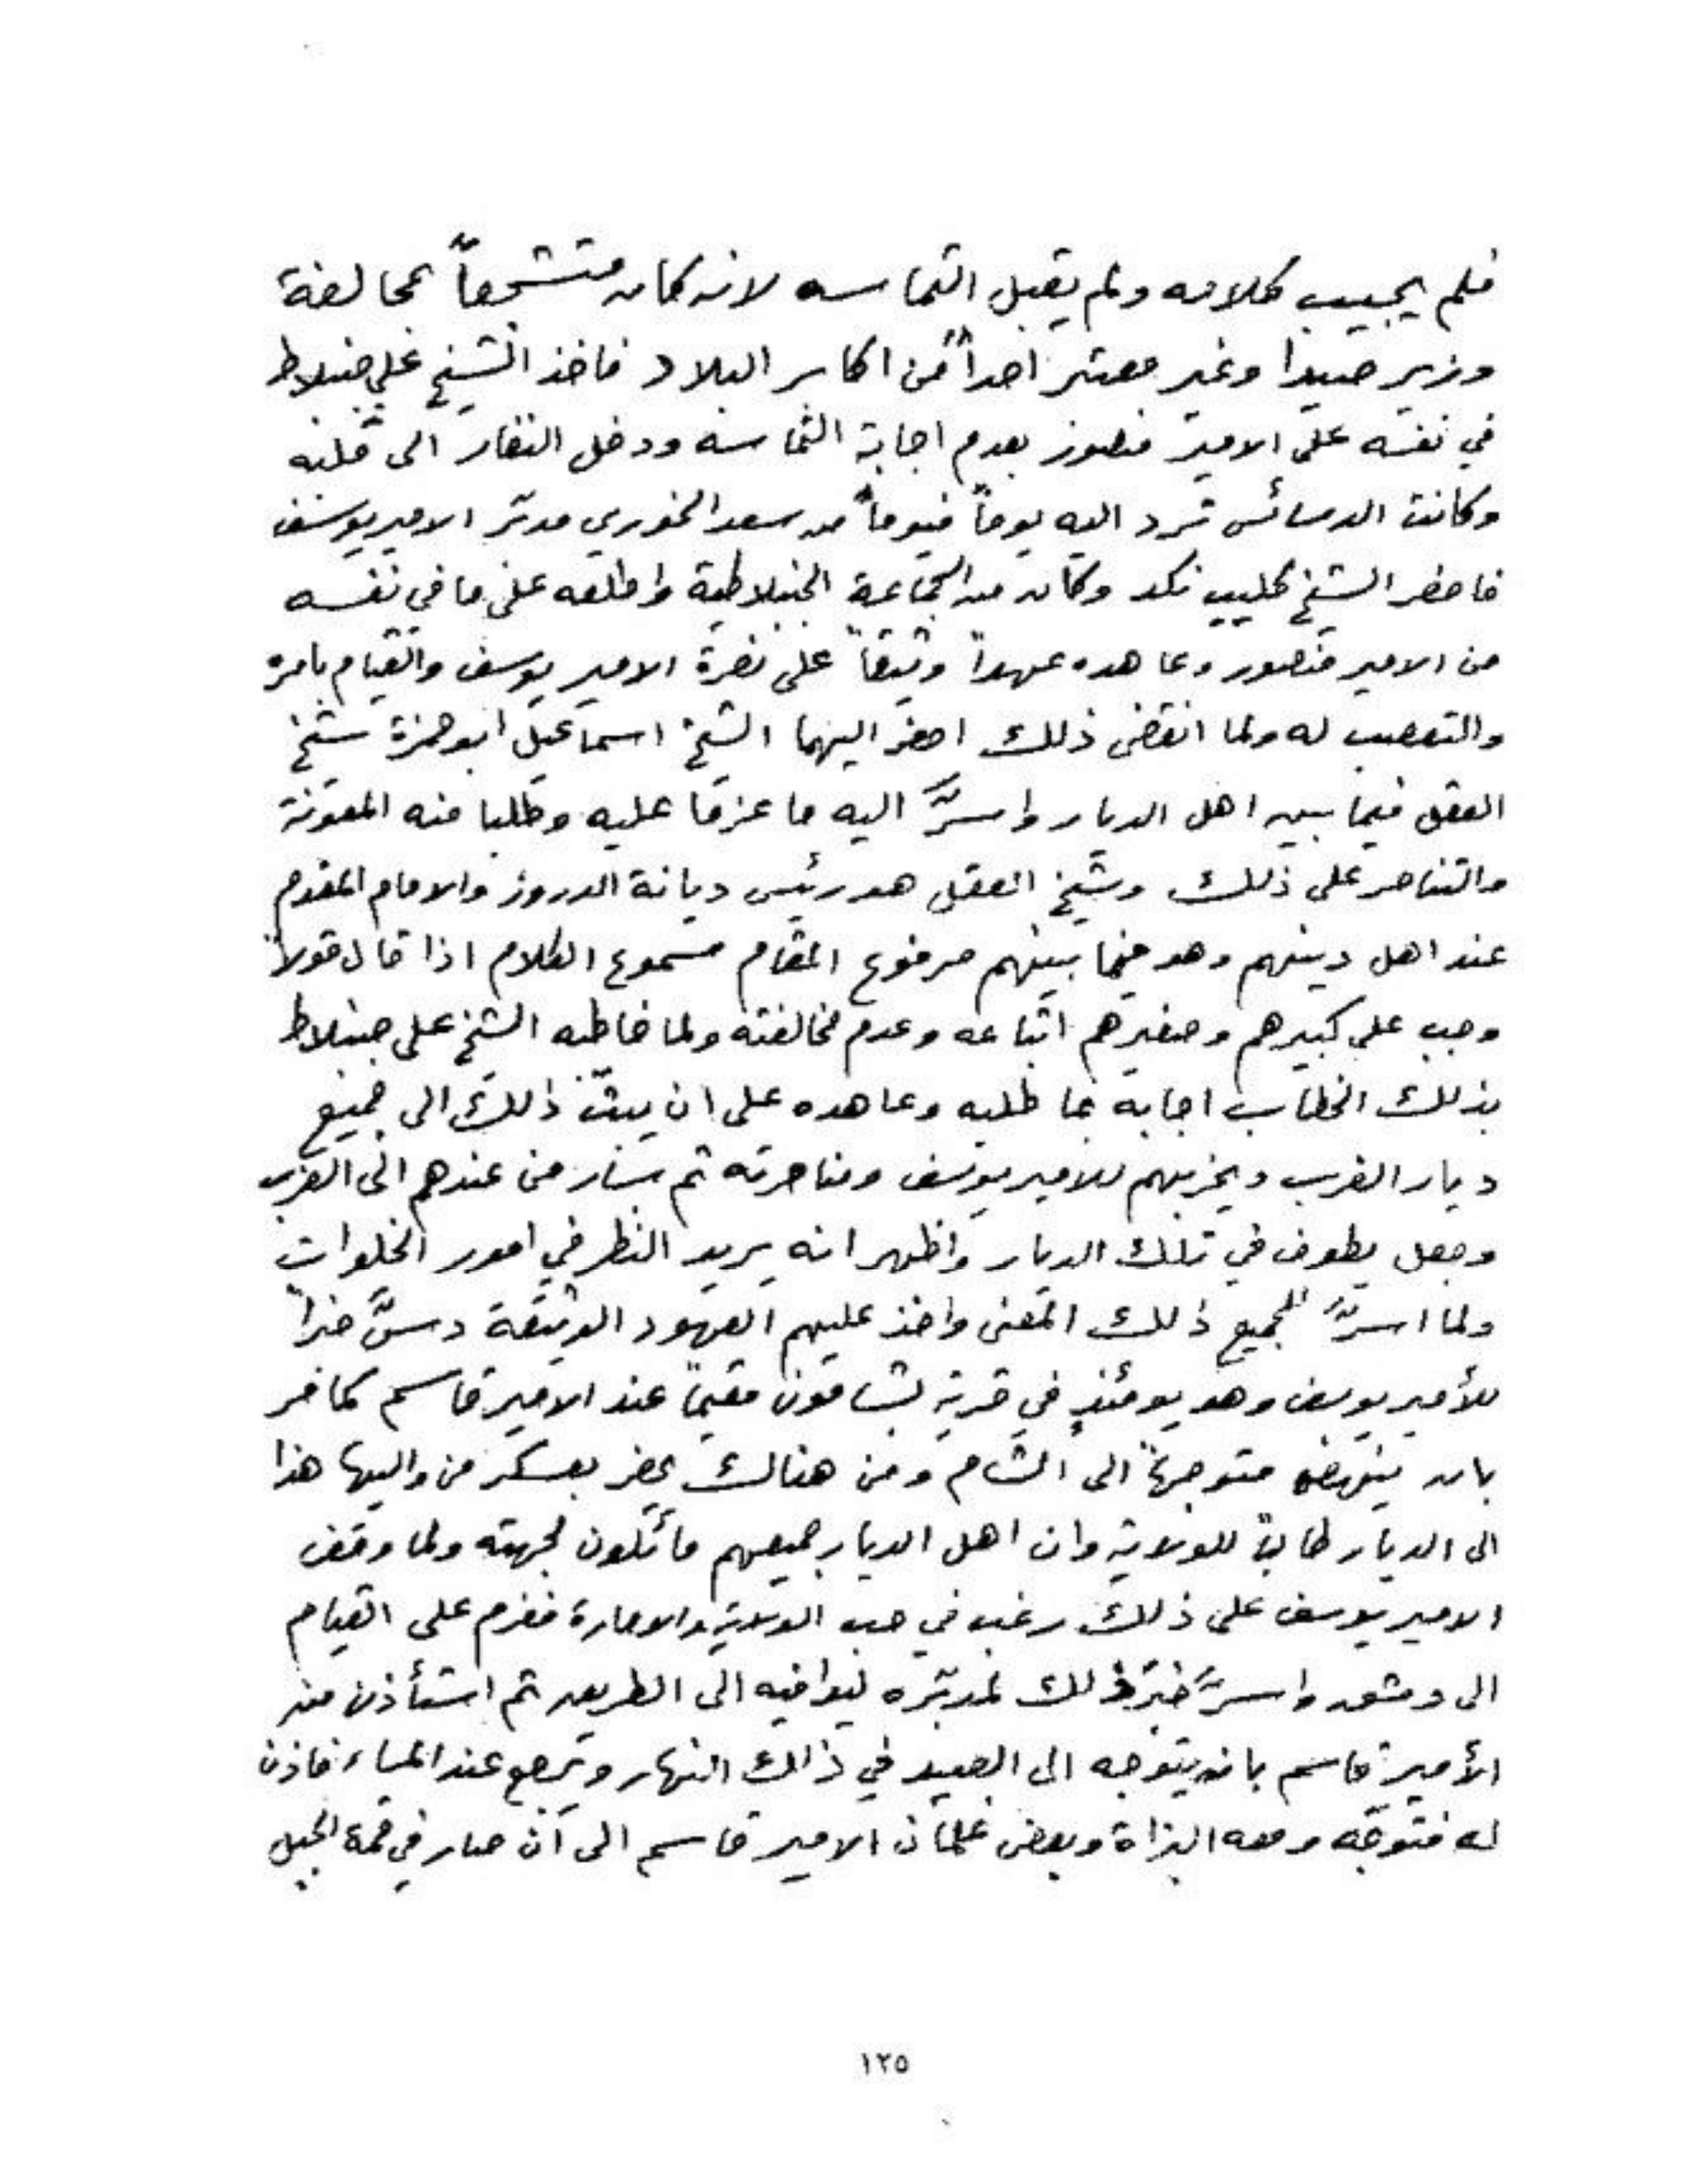 فلم يجيب كلامه ولم يقبل التماسه لانه كان متشجعاً بمحالفة
وزير صيدا وغير معتبر احداً من اكابر البلاد فاخذ الشيخ علي جنبلاط
في نفسه على الامير منصور بعدم اجابة التماسه ودخل النفار الى قلبه
وكانت الدسائس ترد اليه يوماً فيوماً من سعد الخوري مدبّر الامير يوسف
فاحضر الشيخ كليب نكد وكان من الجماعة الجنبلاطية واطلعه على ما في نفسه
من الامير منصور وعاهده عهداً وثيقاً على نصرة الامير يوسف والقيام بامره
والتعصب له ولما انقضى ذلك احضر اليهما الشيخ اسماعيل ابو حمزة شيخ
العقل فيما بين اهل الديار واسرَّا اليه ما عزما عليه وطلبا منه المعونة
والتناصر على ذلك وشيخ العقل هو رئيس ديانة الدروز والامام المقدم
عند اهل دينهم وهو فيما بينهم مرفوع المقام مسموع الكلام اذا قال قولاً
وجب على كبيرهم وصغيرهم اتباعه وعدم مخالفته ولما خاطبه الشيخ علي جنبلاط
بذلك الخطاب اجابه بما طلبه وعاهده على ان يبثّ ذلك الى جميع
ديار الغرب ويحزبهم للامير يوسف ومناصرته ثم سار من عندهم الى الغرب
وجعل يطوف في تلك الديار واظهر انه يريد النظر في امور الخلوات
ولما اسرَّ للجميع ذلك المعنى واخذ عليهم العهود الوثيقة دسَّ خبراً
للأمير يوسف وهو يومئذٍ في قرية بشامون مقيماً عند الامير قاسم كما مر
بان ينهض متوجهاً الى الشام ومن هنالك يحضر بعسكر من واليها هذا
الى الديار طالباً للولاية وان اهل الديار جميعهم مائلون لجهته ولما وقف
الامير يوسف على ذلك رغب في حب الولاية والامارة فعزم على القيام
الى دمشق واسرَّ خبر ذلك لمدبّره ليوافيه الى الطريق ثم استأذن من
الأمير قاسم بانه يتوجه الى الصيد في ذلك النهار ويرجع عند المساء فاذن
له فتوجّه ومعه البزاة وبعض غلمان الامير قاسم الى ان صار في قمة الجبل
١٢٥